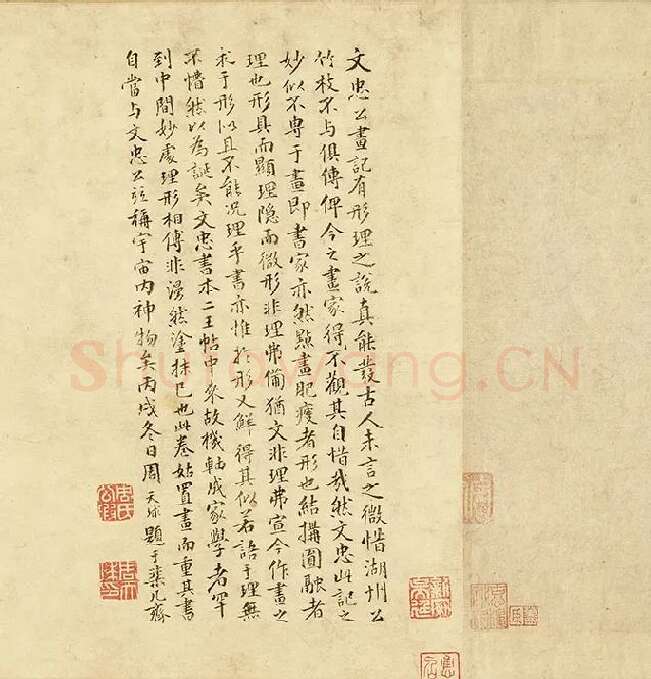 文忠公畫記有形理之說真能發古人未言之微惜湖州公
竹枝不与俱傳俾今之畫家得不觀其自惜哉然文忠此記之
妙似不専于畫即書家亦然點畫肥瘦者形也結搆圓融者
理也形具而顯理隐而微形非理弗備猶文非理弗宣今作畫之
求于形似且不能况理乎書亦惟於形又鮮得其似若語于理無
不惛然以為誕矣文忠書本二王帖中來故機軸成家學者罕
到中間妙處理形相傅非漫然塗抹已也此卷姑置畫而重其書
自當与文忠公並稱宇宙內神物矣丙戌冬日周天球題于几齋
周氏公瑕
Shufawang.CN